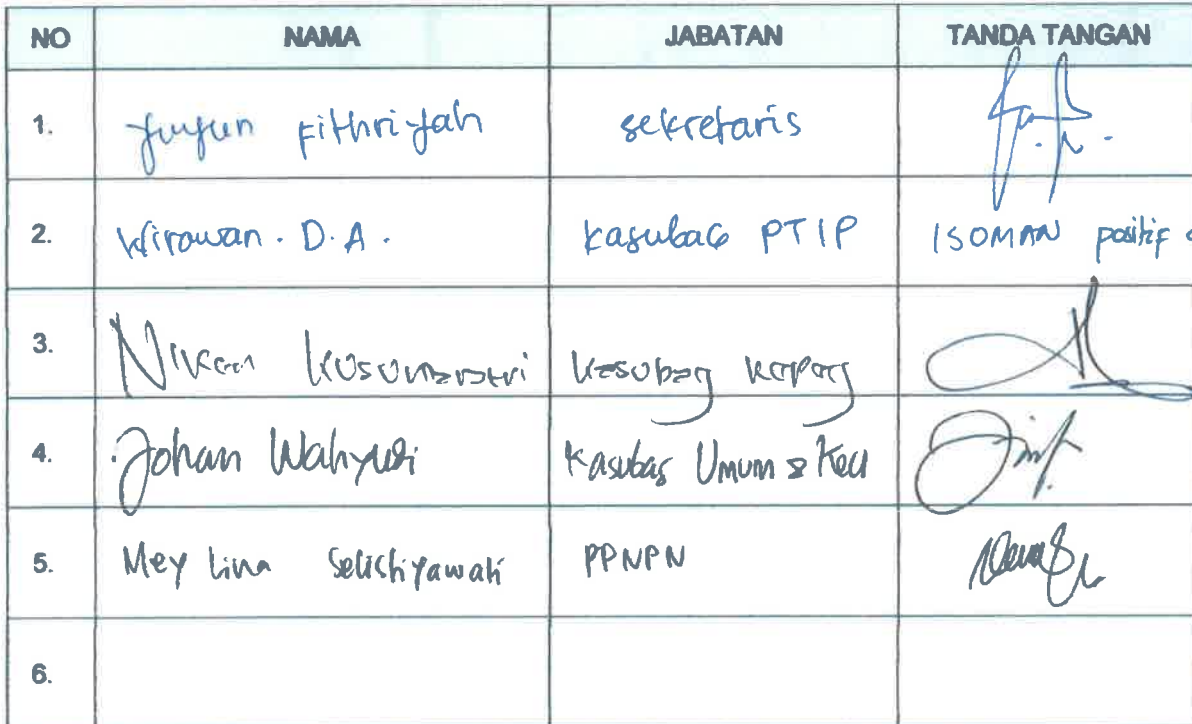 NO NAMA JABATAN TANDA TANGAN
1. Yuyun Fithriyah sekretaris
2. Wirawan. D.A. Kasubag PTIP ISOMAN positif
3. Niken Kusumastri Kasubag Kepeg
4. Johan Wahyudi Kasubag Umum & Keu
5. Mey Lina Selistiyawati PPNPN
6.